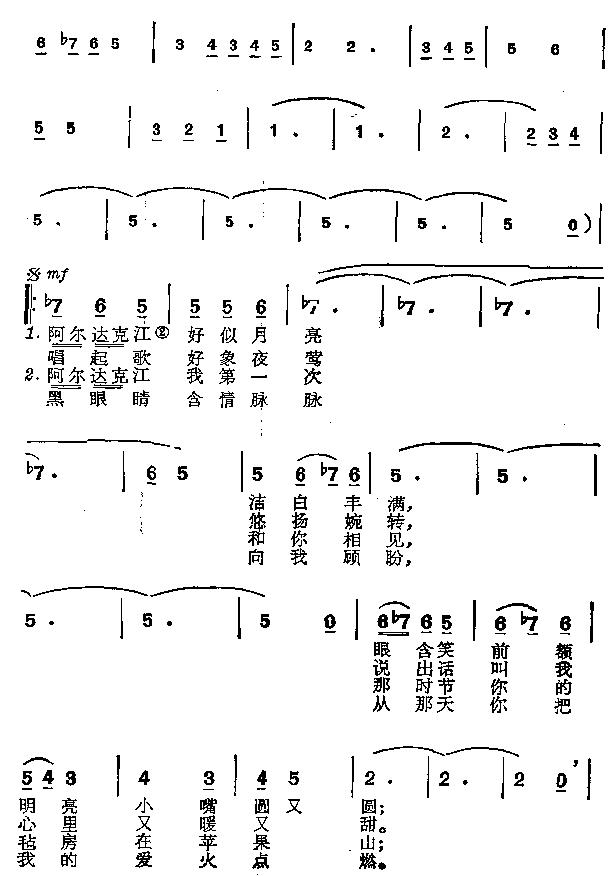 6 ♭7 6 5 | 3 4 3 4 5 | 2 2 . | 3 4 5 | 5 6 |
5 5 | 3 2 1 | 1 . | 1 . | 2 . | 2 3 4 |
5 . | 5 . | 5 . | 5 . | 5 . | 5 0 ) |
𝄋 mf
‖: ♭7 6 5 | 5 5 6 | ♭7 . | ♭7 . | ♭7 . |
1. 阿尔 达克 江② 好 似 月 亮
唱 起 歌 好 象 夜 莺
2. 阿尔 达克 江 我 第 一 次
黑 眼 睛 含 情 脉 脉
♭7 . | 6 5 | 5 6 ♭7 6 | 5 . | 5 . |
洁 白 丰 满,
悠 扬 婉 转,
和 你 相 见,
向 我 顾 盼,
5 . | 5 . | 5 0 | 6 ♭7 6 5 | 6 ♭7 6 |
眼 含 笑 前 额
说 出 话 叫 我
那 时 节 你 的
从 那 天 你 把
5 4 3 | 4 3 | 4 5 | 2 . | 2 . | 2 0 ’ |
明 亮 小 嘴 圆 又 圆;
心 里 又 暖 又 甜。
毡 房 在 苹 果 山;
我 的 爱 火 点 燃。